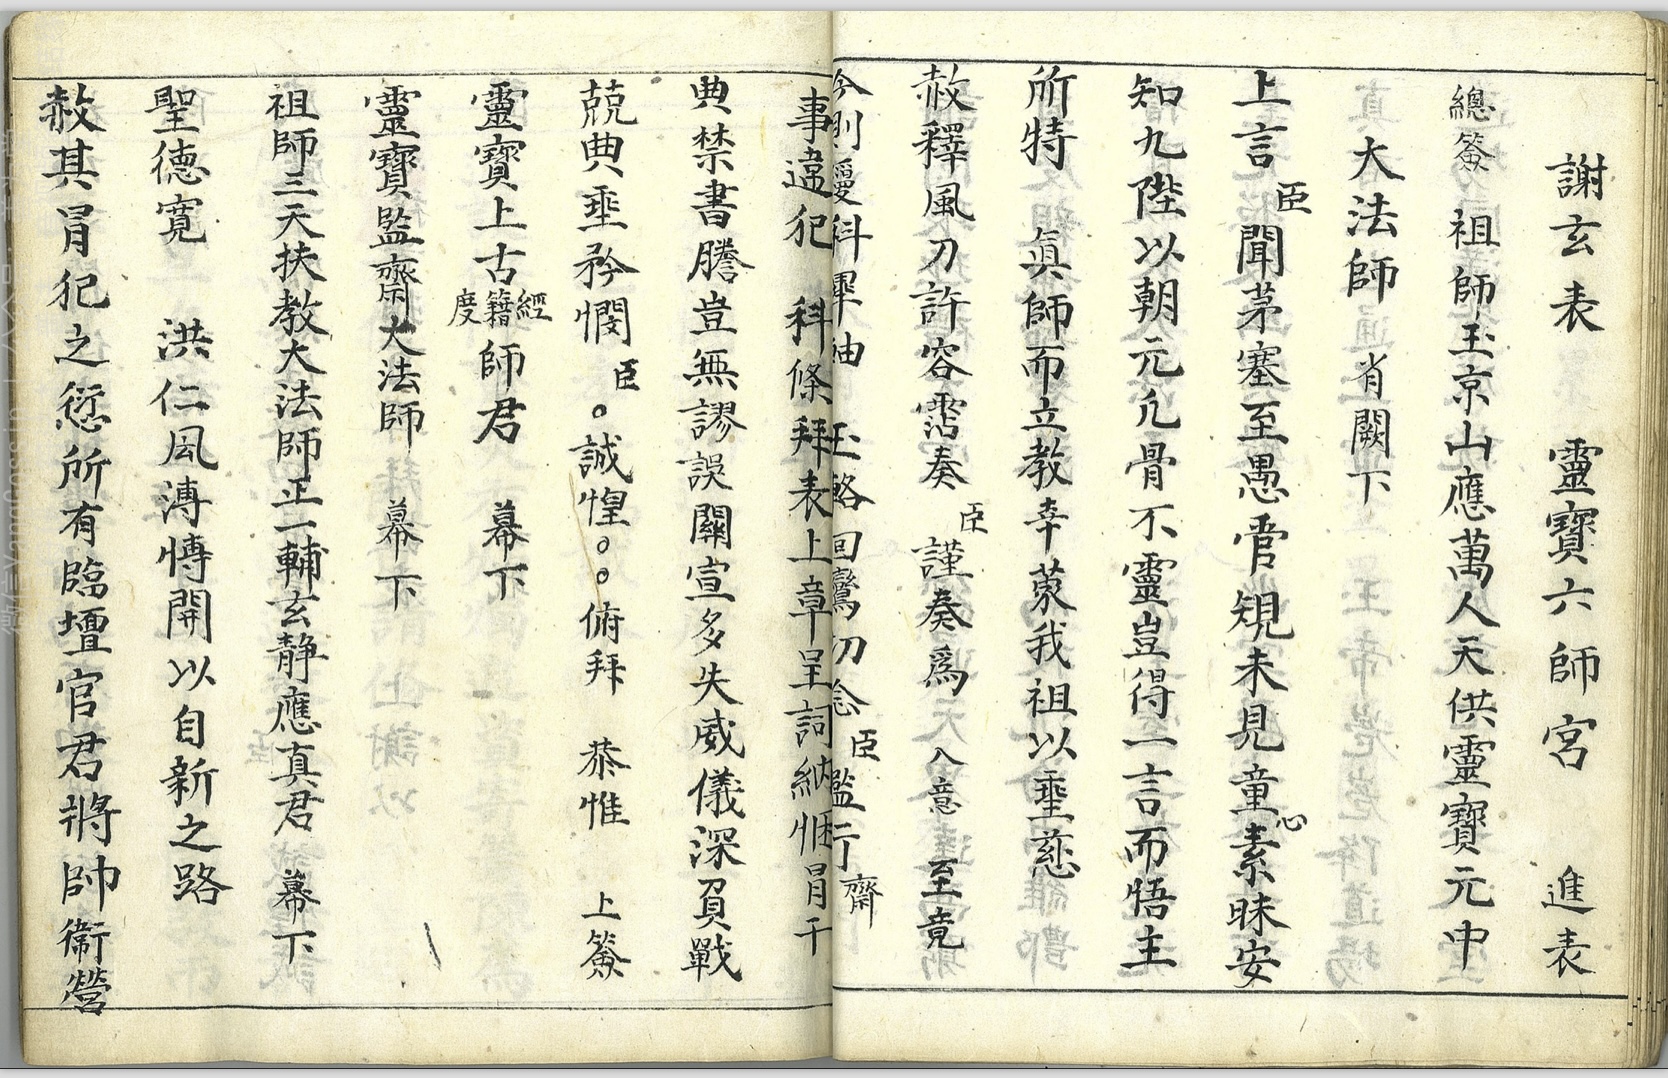 謝玄表　靈寶六師宮　進表
總簽　祖師玉京山應萬人天供靈寶元中
大法師　肖闕下
上言臣聞茅塞至愚管窺未見童心素昧安
知九陛以朝元允骨不靈豈得一言而悟主
所特　真師而立教幸蒙我祖以垂慈
赦釋風刀許容霑奏臣謹奏為　入意　至竟
今則　科畢　回鸞切念臣濫行齋
事違犯　科條拜表上章呈詞納悃冒干
典禁書謄豈無謬誤關宣多失威儀深負戰
兢典垂矜憫臣○誠惶○○俯拜　恭惟　上簽
靈寶上古經籍度師君　幕下
靈寶監齋大法師　幕下
祖師三天扶教大法師正一輔玄静應真君　幕下
聖德寬　洪仁風溥博開以自新之路
赦其冒犯之愆所有臨壇官君將帥衛營